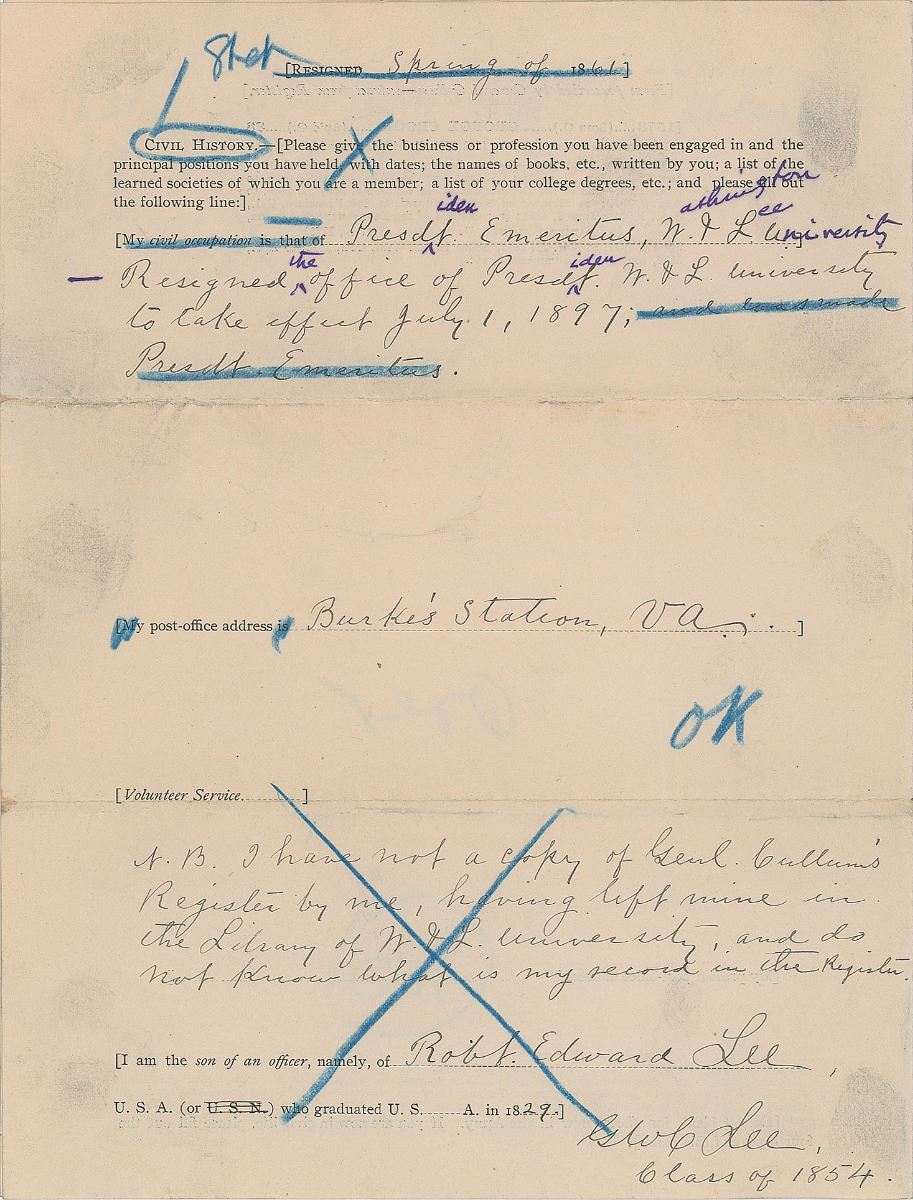 Stet
[RESIGNED Spring of 1861]
CIVIL HISTORY.—[Please give the business or profession you have been engaged in and the
principal positions you have held, with dates; the names of books, etc., written by you; a list of the
learned societies of which you are a member; a list of your college degrees, etc.; and please fill out
the following line:]
iden ashington
ee
[My civil occupation is that of Presdt. Emeritus, W. & L University
the iden
— Resigned office of Presdt. W. & L. University
to take effect July 1, 1897; and was made
Presdt. Emeritus.
[My post-office address is Burke's Station, VA.]
OK
[Volunteer Service.......]
N. B. I have not a copy of Genl. Cullum's
Register by me, having left mine in
the Library of W. & L. University, and do
not know what is my record in the Register.
[I am the son of an officer, namely, of Robt. Edward Lee,
U. S. A. (or U. S. N.) who graduated U. S...... A. in 1829.]
GWC Lee,
Class of 1854.